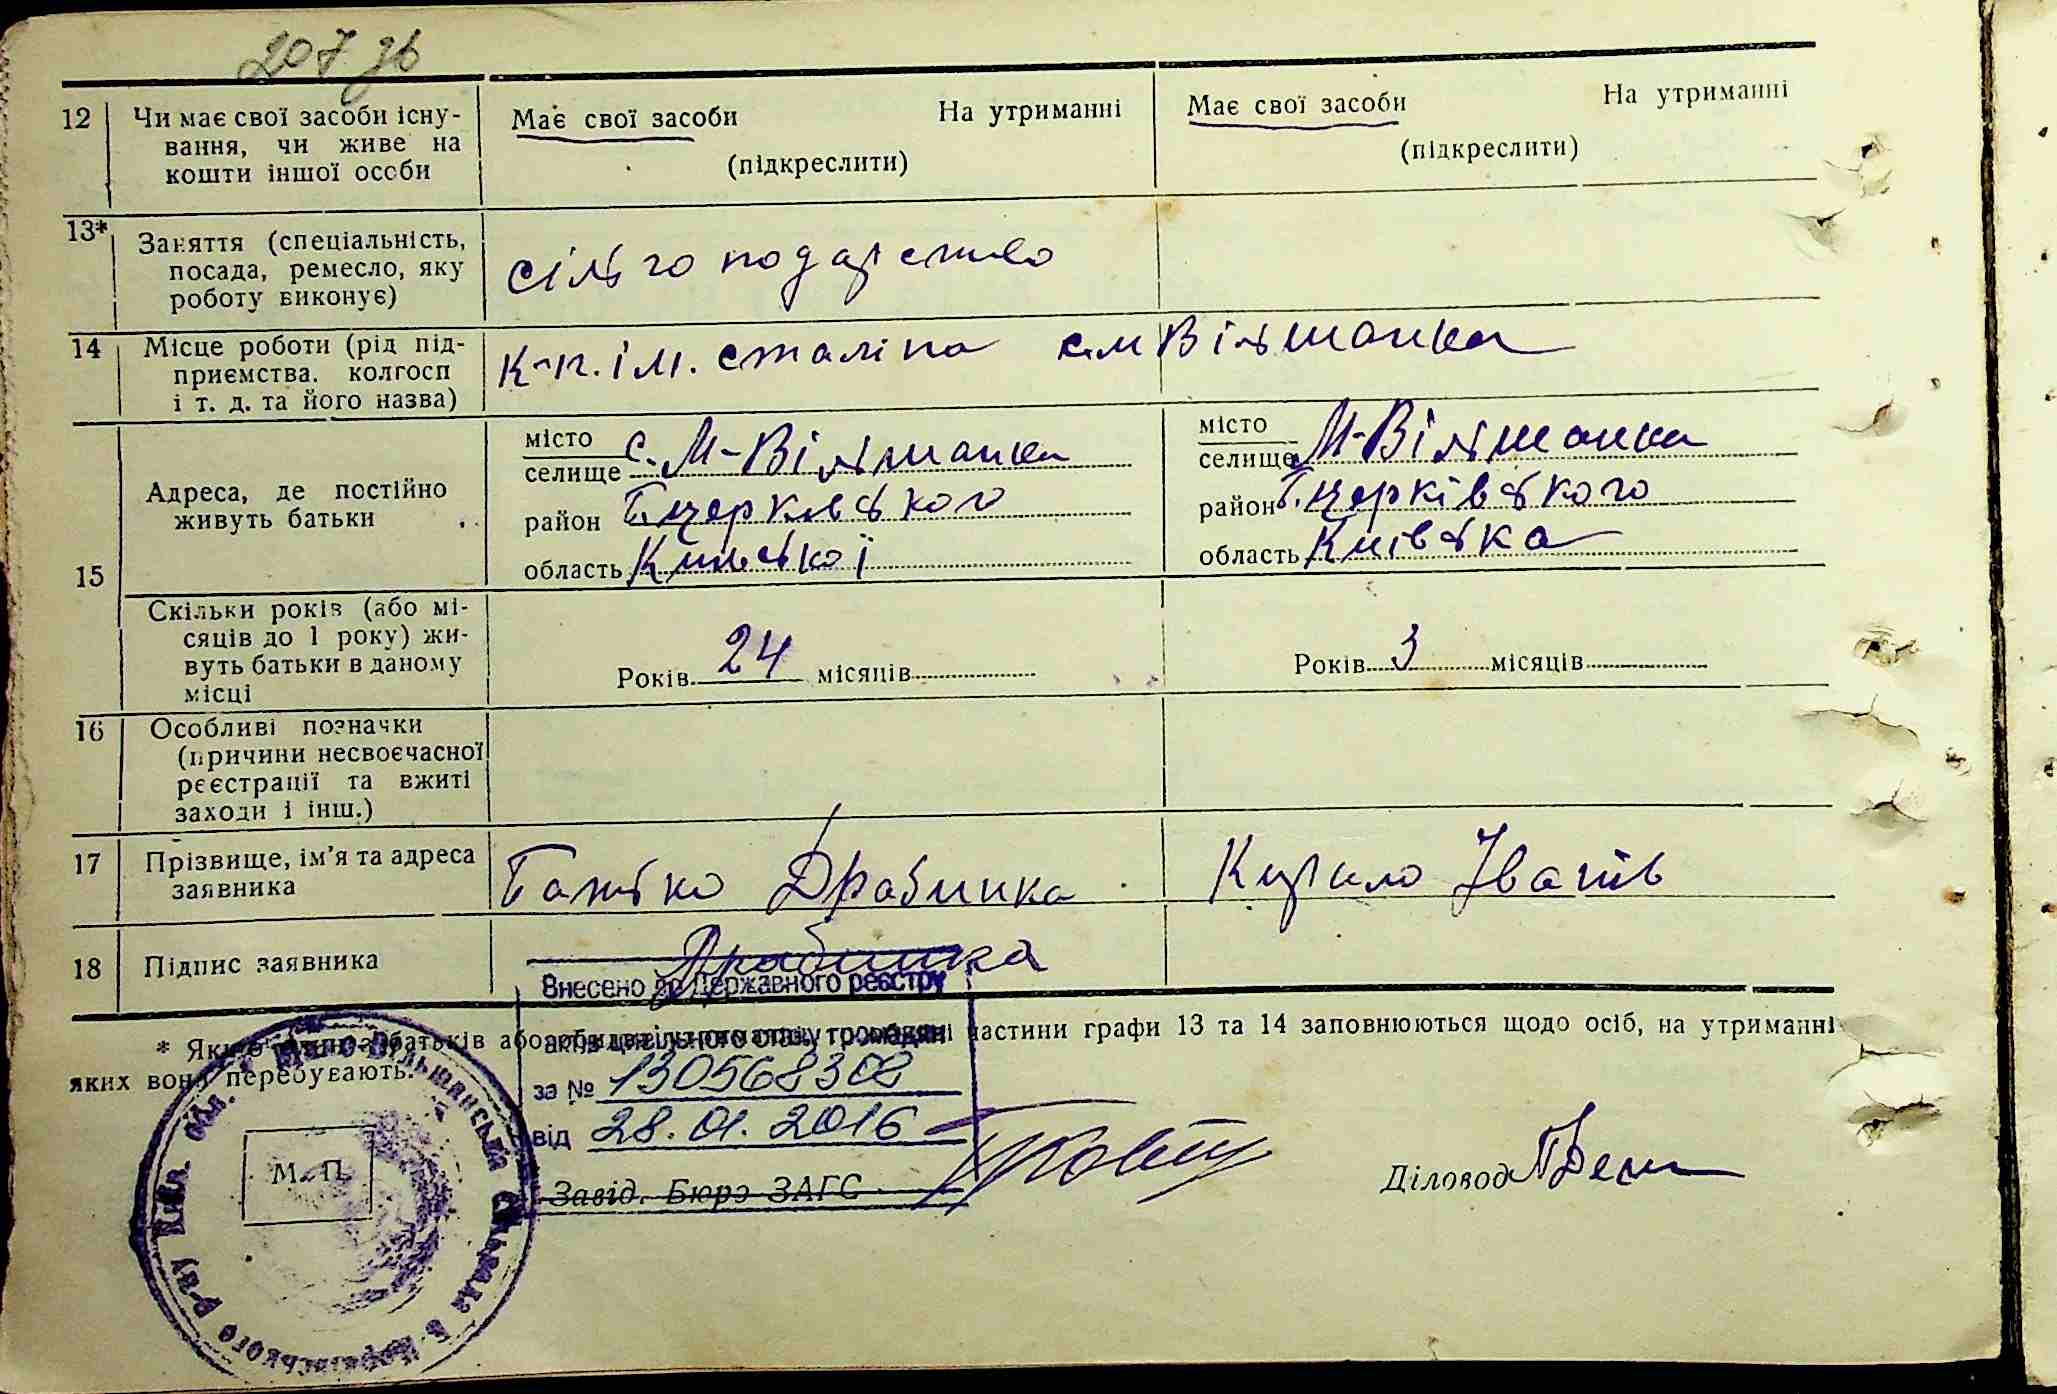 207 зв
12 Чи має свої засоби існу-
вання, чи живе на
кошти іншої особи
Має свої засоби На утриманні
(підкреслити)
Має свої засоби На утриманні
(підкреслити)
13* Заняття (спеціальність,
посада, ремесло, яку
роботу виконує)
сільгоподарство
14 Місце роботи (рід під-
приємства. колгосп
і т. д. та його назва)
к-п. ім. сталіна с. М Вільшанка
15 Адреса, де постійно
живуть батьки
місто
селище с. М-Вільшанка
район Б.церківського
область Київської
місто
селище М-Вільшанка
район Б.церківського
область Київська
Скільки років (або мі-
сяців до 1 року) жи-
вуть батьки в даному
місці
Років 24 місяців
Років 3 місяців
16 Особливі позначки
(причини несвоєчасної
реєстрації та вжиті
заходи і інш.)
17 Прізвище, ім'я та адреса
заявника
Батько Драбинка Кирило Іванів
18 Підпис заявника
Драбинка
* Якщо батьків або частини графи 13 та 14 заповнюються щодо осіб, на утриманні
яких вони перебувають.
Внесено до Державного реєстру
актів цивільного стану громадян
за № 130568308
від 28.01.2016
М. П.
Завід. Бюро ЗАГС
Діловод